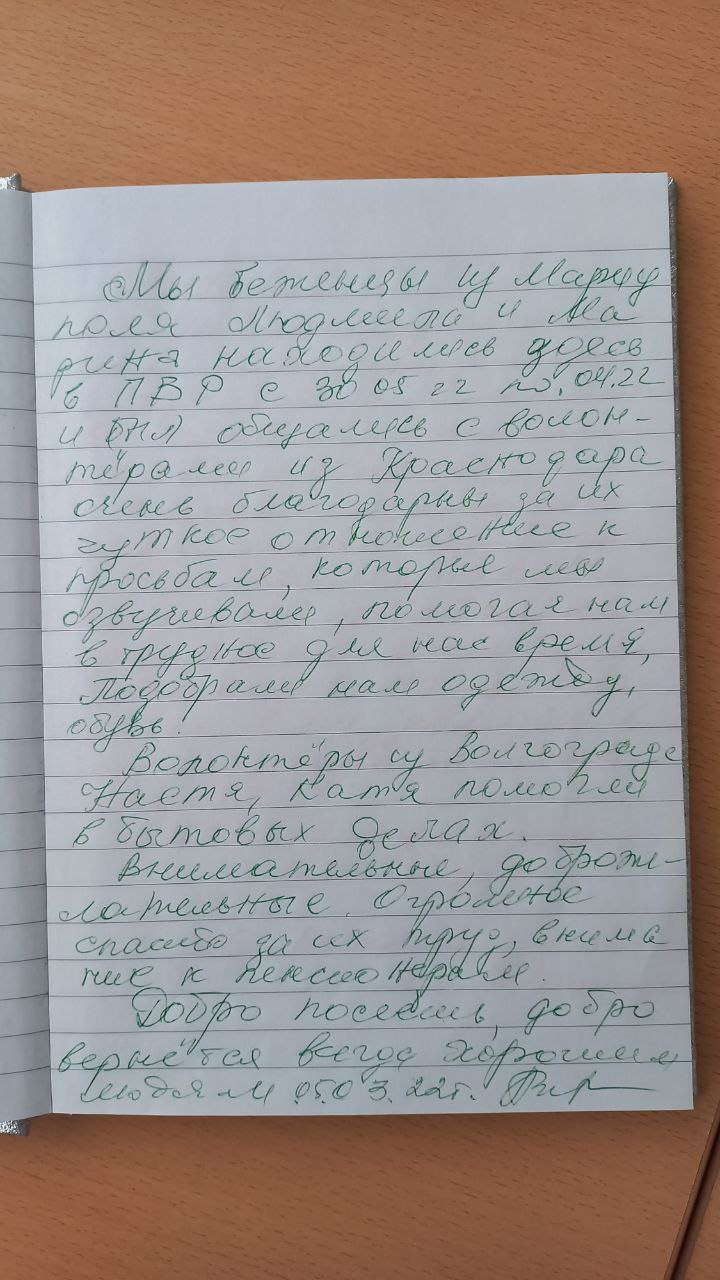 Мы беженцы из Мариу
поля Людмила и Ма
рина находились здесь
в ПВР с 30 05 22 по .04.22
и общались с волон-
тёрами из Краснодара
очень благодарны за их
чуткое отношение к
просьбам, которые мы
озвучивали, помогая нам
в трудное для нас время,
Подобрали нам одежду,
обувь.
Волонтёры из Волгограда
Настя, Катя помогли
в бытовых делах.
Внимательные, доброже-
лательные. Огромное
спасибо за их труд, внима
ние к пенсионерам.
Добро посеешь, добро
вернётся всегда хорошим
людям 05.03.22г.